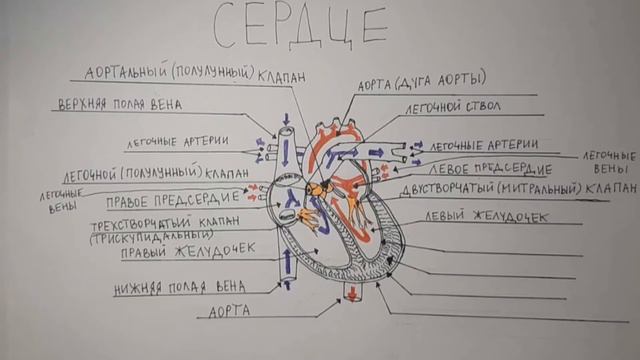 СЕРДЦЕ
АОРТАЛЬНЫЙ (ПОЛУЛУННЫЙ) КЛАПАН
ВЕРХНЯЯ ПОЛАЯ ВЕНА
ЛЕГОЧНЫЕ АРТЕРИИ
ЛЕГОЧНОЙ (ПОЛУЛУННЫЙ) КЛАПАН
ЛЕГОЧНЫЕ
ВЕНЫ
ПРАВОЕ ПРЕДСЕРДИЕ
ТРЕХСТВОРЧАТЫЙ КЛАПАН
(ТРИСКУПИДАЛЬНЫЙ)
ПРАВЫЙ ЖЕЛУДОЧЕК
НИЖНЯЯ ПОЛАЯ ВЕНА
АОРТА
АОРТА (ДУГА АОРТЫ)
ЛЕГОЧНОЙ СТВОЛ
ЛЕГОЧНЫЕ АРТЕРИИ
ЛЕГОЧНЫЕ
ВЕНЫ
ЛЕВОЕ ПРЕДСЕРДИЕ
ДВУСТВОРЧАТЫЙ (МИТРАЛЬНЫЙ) КЛАПАН
ЛЕВЫЙ ЖЕЛУДОЧЕК